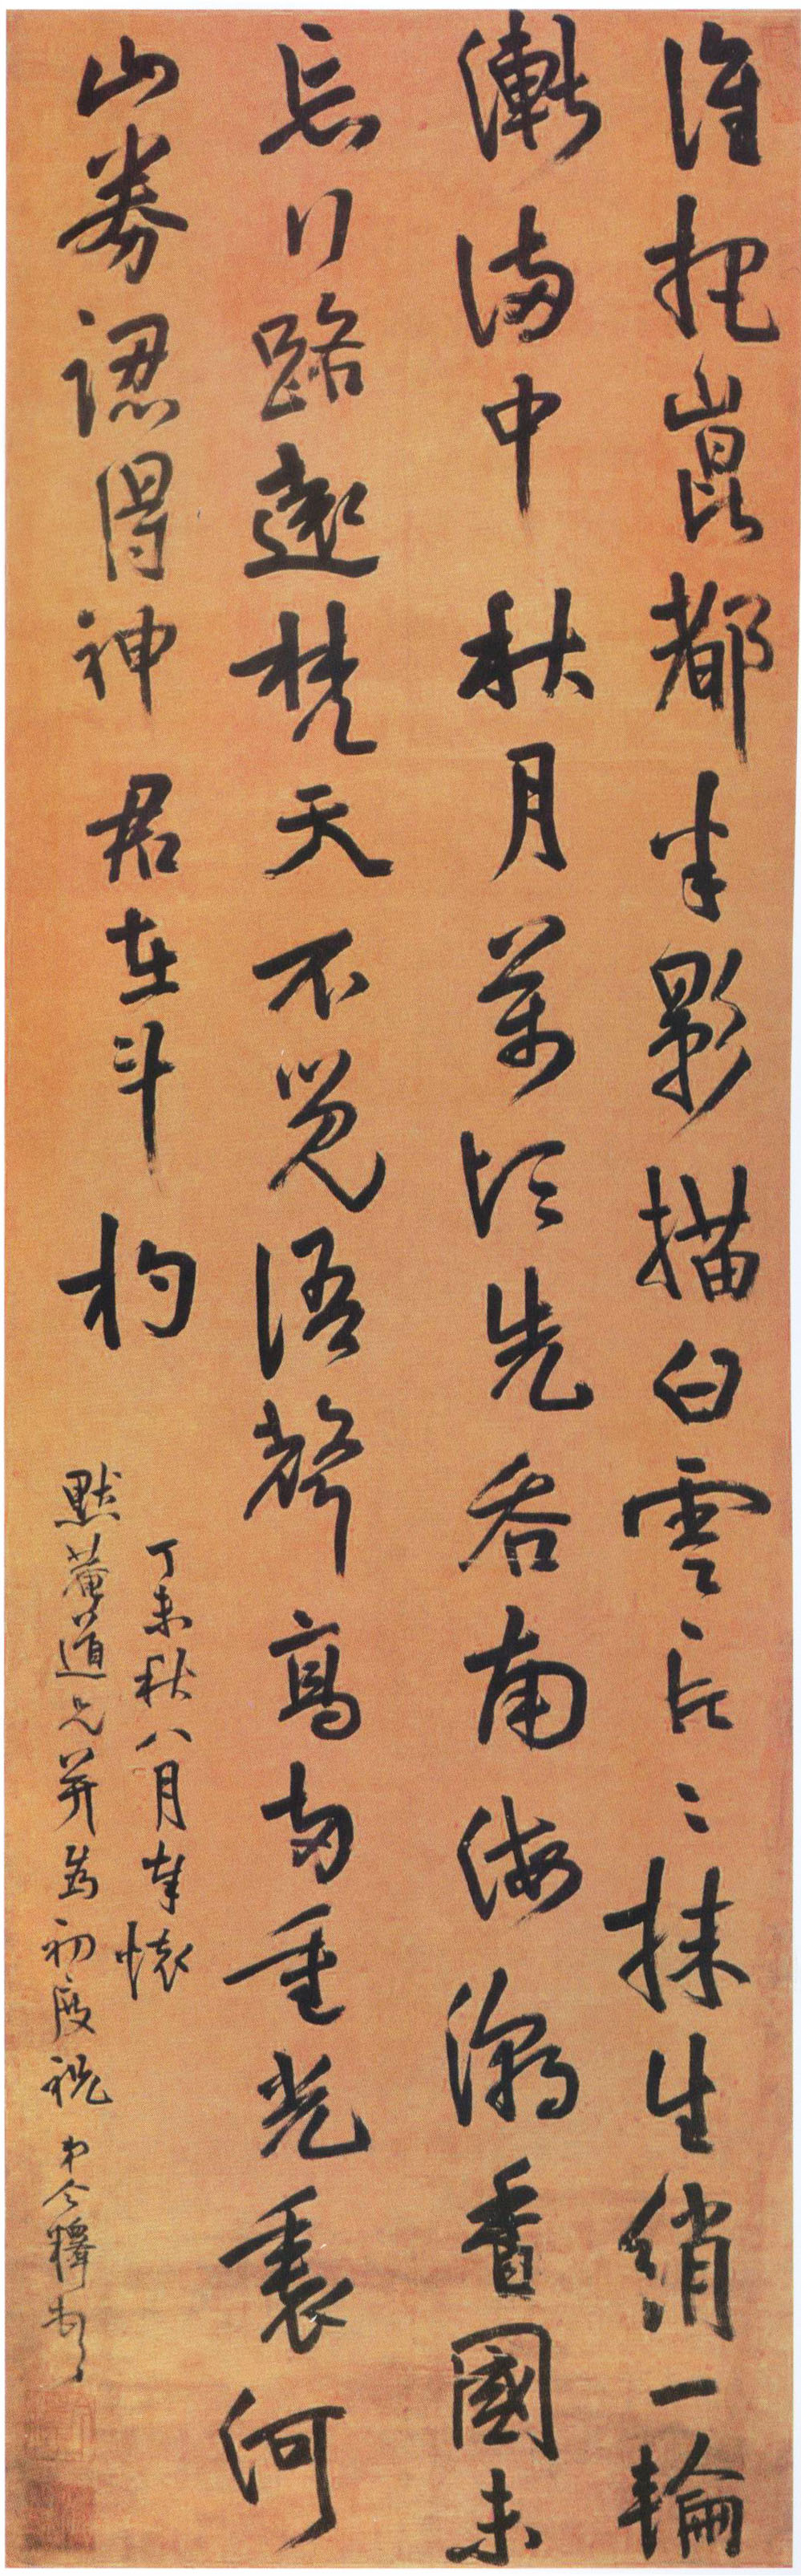 誰把崑都半影描白雲片〻抹生綃一輪
漸滿中秋月萬頃先吞南海潮香國未
忘行路遠梵天不覺語聲高兩重光裏河
山券認得神君在斗杓
丁未秋八月奉懷
默菴道兄并為初度祝 弟今釋